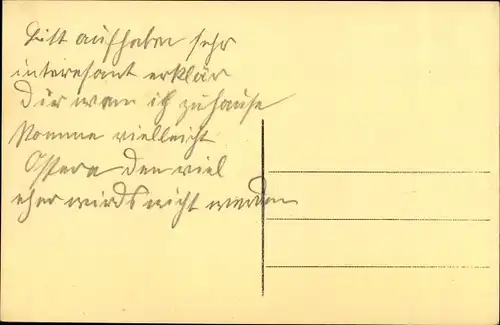 Bitt aufhaben sehr
interesant erklär
Dir wan ich zuhause
komme vielleicht
Ostern den viel
eher wirds nicht werden